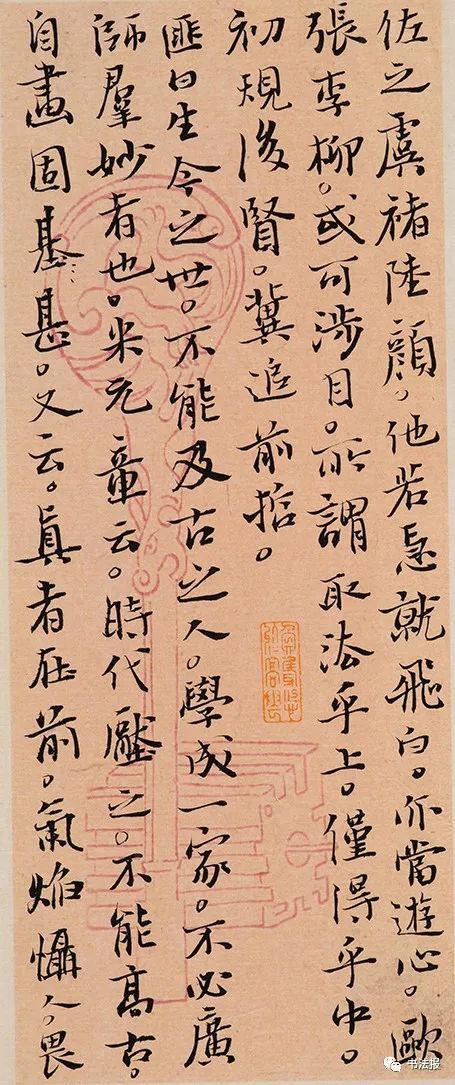 佐之虞褚陸顏。他若急就飛白。亦當遊心。歐
張李柳。或可涉目。所謂取法乎上。僅得乎中。
初規後賢。冀追前哲。
匪曰生今之世。不能及古之人。學成一家。不必廣
師羣妙者也。米元章云。時代壓之。不能高古。
自畫固基甚。又云。眞者在前。氣焰懾人。畏
书法报